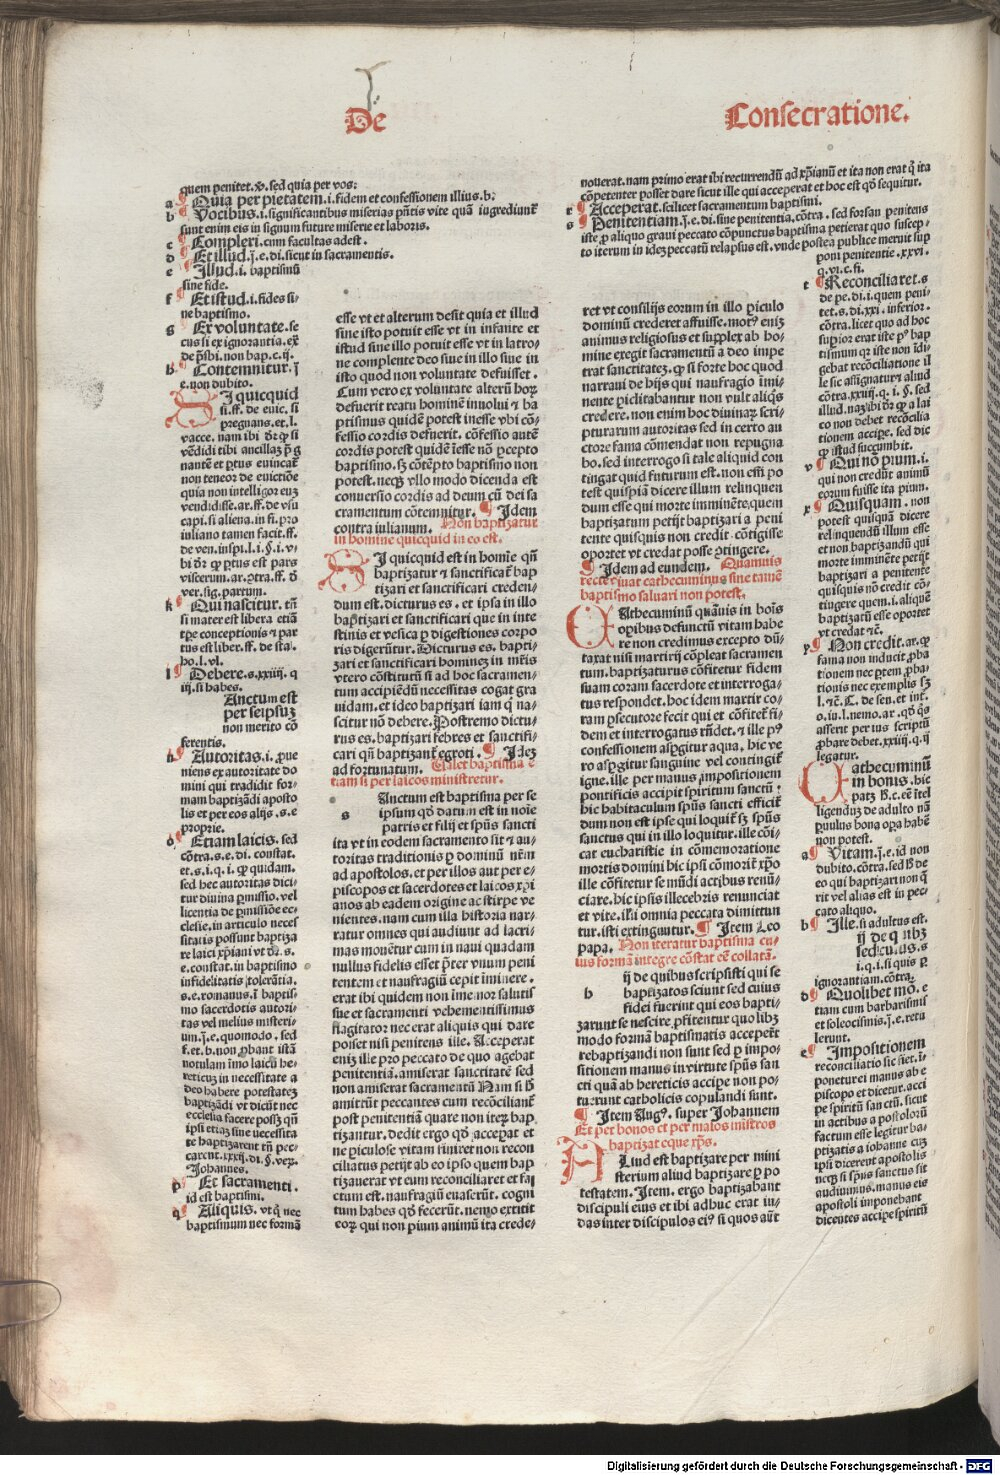 De
Consecratione.
quem penitet. sed quia per vos:
a Quia per pietatem.i.fidem et confessionem illius.b.
b Vocibus.i.significantibus miserias pn̄tis vite quā iugrediunt̄
sunt enim eis in signum future miserie et laboris.
c Compleri.cum facultas adest.
d Et illud.j.e.di.sicut in sacramentis.
e Illud.i. baptismū
sine fide.
f Et istud.i.fides si-
ne baptismo.
g Ex voluntate.se
cus si ex ignorantia.
h Contemnitur.j
e.non dubito.
SI quicquid
si.ff. de euic. si
pregnans.et.l.
vacce. nam ibi
vēdidi tibi ancillaz
non teneor de euictiōe
quia non intelligor euz
vendidisse.ar.ff.de vsu
capi.si aliena.in fi.pro
iuliano tamen facit.ff.
k Qui nascitur.
si mater est libera etiā
tpe conceptionis
tus est liber.ff. de sta.
ho.l.vl.
l Debere.s.xxiiij. q
iij.si habes.
Anctum est
per seipsuz
non merito cō
ferentis.
n Autoritas.i.
niens ex autoritate do
mini qui tradidit for-
mam baptizādi aposto
lis et per eos alijs.s.e
proprie.
o Etiam laicis. sed
cōtra.s.e.di. constat.
sed hec autoritas dici
tur diuina
clesie.in articulo neces
sitatis possunt baptiza
re laici
e.constat.in baptismo
infidelitatis tolerātia.
s.e.romanus.i baptis-
mo sacerdotis autori-
tas vel melius misteri-
um.j.e.quomodo. sed
notulam imo laicū he-
reticuz in necessitate a
deo habere potestatez
baptizādi vt dicūt nec
ecclesia facere possz qn̄
ipsi etiaz sine necessita
te baptizarent
carent.xxxij.di.§.verz.
Johannes.
p Et sacramenti.
id est baptismi.
q Aliquis.
baptismum nec formā
esse vt et alterum desit quia et illud
sine isto potuit esse vt in infante et
istud sine illo potuit esse vt in latro-
ne complente deo siue in illo siue in
isto quod non voluntate defuisset.
Cum vero ex voluntate alterū horz
defuerit reatu hominē inuolui
ptismus quidē potest inesse vbi cō-
fessio cordis defuerit. cōfessio autē
cordis potest quidē īesse nō
baptismo. cōtēpto baptismo non
potest.necqz vllo modo dicenda est
conuersio cordis ad deum cū dei sa
cramentum cōtemnitur. ¶ Idem
contra iulianum. Non baptizatur
in homine quicquid in eo est.
SI quicquid est in homīe qn̄
baptizatur
tizari et sanctificari creden-
dum est.dicturus es. et ipsa in illo
baptizari et sanctificari que in inte
stinis et vesica digestiones corpo
ris digerūtur. Dicturus es. bapti-
zari et sanctificari hominez in mr̄is
vtero cōstitutū si ad hoc sacramen-
tum accipiēdū necessitas cogat gra
uidam. et ideo baptizari iam
scitur nō debere. Postremo dictu-
rus es. baptizari febres et sanctifi-
cari qn̄ baptizant̄ egroti. ¶ Idez
ad fortunatum. Valet baptisma e
tiam si per laicos ministretur.
s Anctum est baptisma per se
ipsum datum est in noīe
patris et filij et spūs sancti
ita vt in eodem sacramento sit
toritas traditionis dominū nr̄m
ad apostolos.et per illos aut per e-
piscopos et sacerdotes et laicos xp̄i
anos ab eadem origine ac stirpe ve
nientes. nam cum illa historia nar-
ratur omnes qui audiunt ad lacri-
mas mouētur cum in naui quadam
nullus fidelis esset vnum peni
tentem et naufragiū cepit iminere.
erat ibi quidem non īmemor salutis
sue et sacramenti vehementissimus
flagitator nec erat aliquis qui dare
posset nisi penitens ille. Acceperat
eniz ille pro peccato de quo agebat
penitentiā. amiserat sanctitatē sed
non amiserat sacramentū Nam si
amittūt peccantes cum recōciliant̄
post penitentiā quare non iterz bap
tizantur.dedit ergo accepat et
ne piculose vitam finiret non recon
ciliatus petijt ab eo ipso quem bap
tizauerat vt eum reconciliaret et fa
ctum est. naufragiū euaserūt. cogni
tum habes fecerūt. nemo extitit
eorz qui non pium animū ita crede-
nouerat.nam primo erat ibi recurrendū ad xp̄ianū et ita non erat ita
cōpetenter posset dare sicut ille qui acceperat et hoc est sequitur.
r Acceperat.scilicet sacramentum baptismi.
s Penitentiam.j.e.di.sine penitentia.cōtra. sed forsan penitens
iste aliquo graui peccato cōpunctus baptisma petierat quo suscep-
to iterum in idez peccatū relapsus est. vnde postea publice meruit sup
poni penitentie.xxvi.
q.vi.c.fi.
ret vt consilijs eorum in illo piculo
dominū crederet affuisse. eniz
animus religiosus et supplex ab ho-
mine exegit sacramentū a deo impe
trat sanctitatez. si forte hoc quod
narraui de hijs qui naufragio īmi-
nente piclitabantur non vult aliqs
credere. non enim hoc diuinarz scri-
pturarum autoritas sed in certo au
ctore fama cōmendat non repugna
bo. sed interrogo si tale aliquid con
tingat quid futurum est. non eni po
test quispiā dicere illum relinquen
dum esse qui morte imminēte quem
baptizatum petijt baptizari a peni
tente quisquis non credit cōtigisse
oportet vt credat posse
¶ Idem ad eundem. Quamuis
recte viuat cathecuminus sine tamē
baptismo saluari non potest.
CAthecuminū quāuis in boīs
opibus defunctū vitam habe
re non credimus excepto dū-
taxat nisi martirij cōpleat sacramen
tum. baptizaturus cōfitetur fidem
suam coram sacerdote et interroga-
tus respondet. hoc idem martir co-
ram psecutore fecit qui et cōfitet̄ fi-
dem et interrogatus
confessionem aspgitur aqua. hic ve
ro aspgitur sanguine vel contingit̄
igne. ille per manus impositionem
pontificis accipit spiritum sanctū
hic habitaculum spūs sancti efficit̄
dum non est ipse qui loquit̄ spūs
sanctus qui in illo loquitur.ille cōi-
cat eucharistie in cōmemoratione
mortis domini hic ipsi cōmorit̄ xp̄o
ille cōfitetur se mūdi actibus renū-
ciare. hic ipsis illecebris renunciat
et vite. illi omnia peccata dimittun
tur. isti extinguūtur. ¶ Item Leo
papa. Non iteratur baptisma cu-
ius formā integre cōstat eē collatā.
h ij de quibus scripsisti qui se
baptizatos sciunt sed cuius
fidei fuerint qui eos bapti-
zarunt se nescire pfitentur quolibz
modo formā baptismatis
rebaptizandi non sunt sed impo-
sitionem manus in virtute spūs san
cti quā ab hereticis accipe non po-
tuerunt catholicis copulandi sunt.
¶ Item Aug9. super Johannem
Et per bonos et per malos mīstros
baptizat eque xp̄s.
ALiud est baptizare per mini
sterium aliud baptizare po
testatem. Item. ergo baptizabant
discipuli eius et ibi adhuc erat iu-
das inter discipulos ei9 si quos aūt
t Reconciliaret.s
de pe.di.i.quem peni-
tet.s.di.xxi. inferior.
cōtra.licet quo ad hoc
supior erat iste
tisimum qz iste non īdi-
gebat recōciliatione il
le sic assignatur
cōtra.xxiij.q. i. §. sed
illud. a lai
co non debet recōcilia
tionem accipe. sed dic
istud succumbit.
v Qui nō pium.i.
qui non credūt animū
eorum fuisse ita pium.
x Quisquam. non
potest quisquā dicere
relinquendū illum esse
et non baptizandū qui
morte imminēte petijt
baptizari a penitente
quisquis nō credit cō-
tingere quem.i.aliquē
baptizatū esse oportet
vt credat
y Non credit.ar.
fama non inducit
tionem nec
tionis nec exemplis
asserit per ius scriptū
legatur.
CAthecuminū
in bonis. hic
ligenduz de adulto nā
paruulus bona opa habē
non potest.
a Vitam.j.e.id non
dubito.cōtra.sed de
eo qui baptizari non
rit vel alias est in pec-
cato aliquo.
b Ille.si adultus est.
ij de quibz
sed cuius.s
i.q.i.si quis
ignorantiam.cōtra.
d Quolibet mō. e
tiam cum barbarismis
et soleocismis.j.e.retu
lerunt.
e Impositionem
reconciliatorie sic set.i-
ponetur ei manus ab e
piscopo et dicetur.acci
pe spiritū san ctū. sicut
in actibus a postolorū
factum esse legitur ba-
ptizatis a iohanne cuz
ipsi dicerent apostolis
necqz si spūs sanctus sit
audiuimus.manus eis
apostoli imponebant
dicentes accipe spiritū
Digitalisierung gefördert durch die Deutsche Forschungsgemeinschaft - DFG